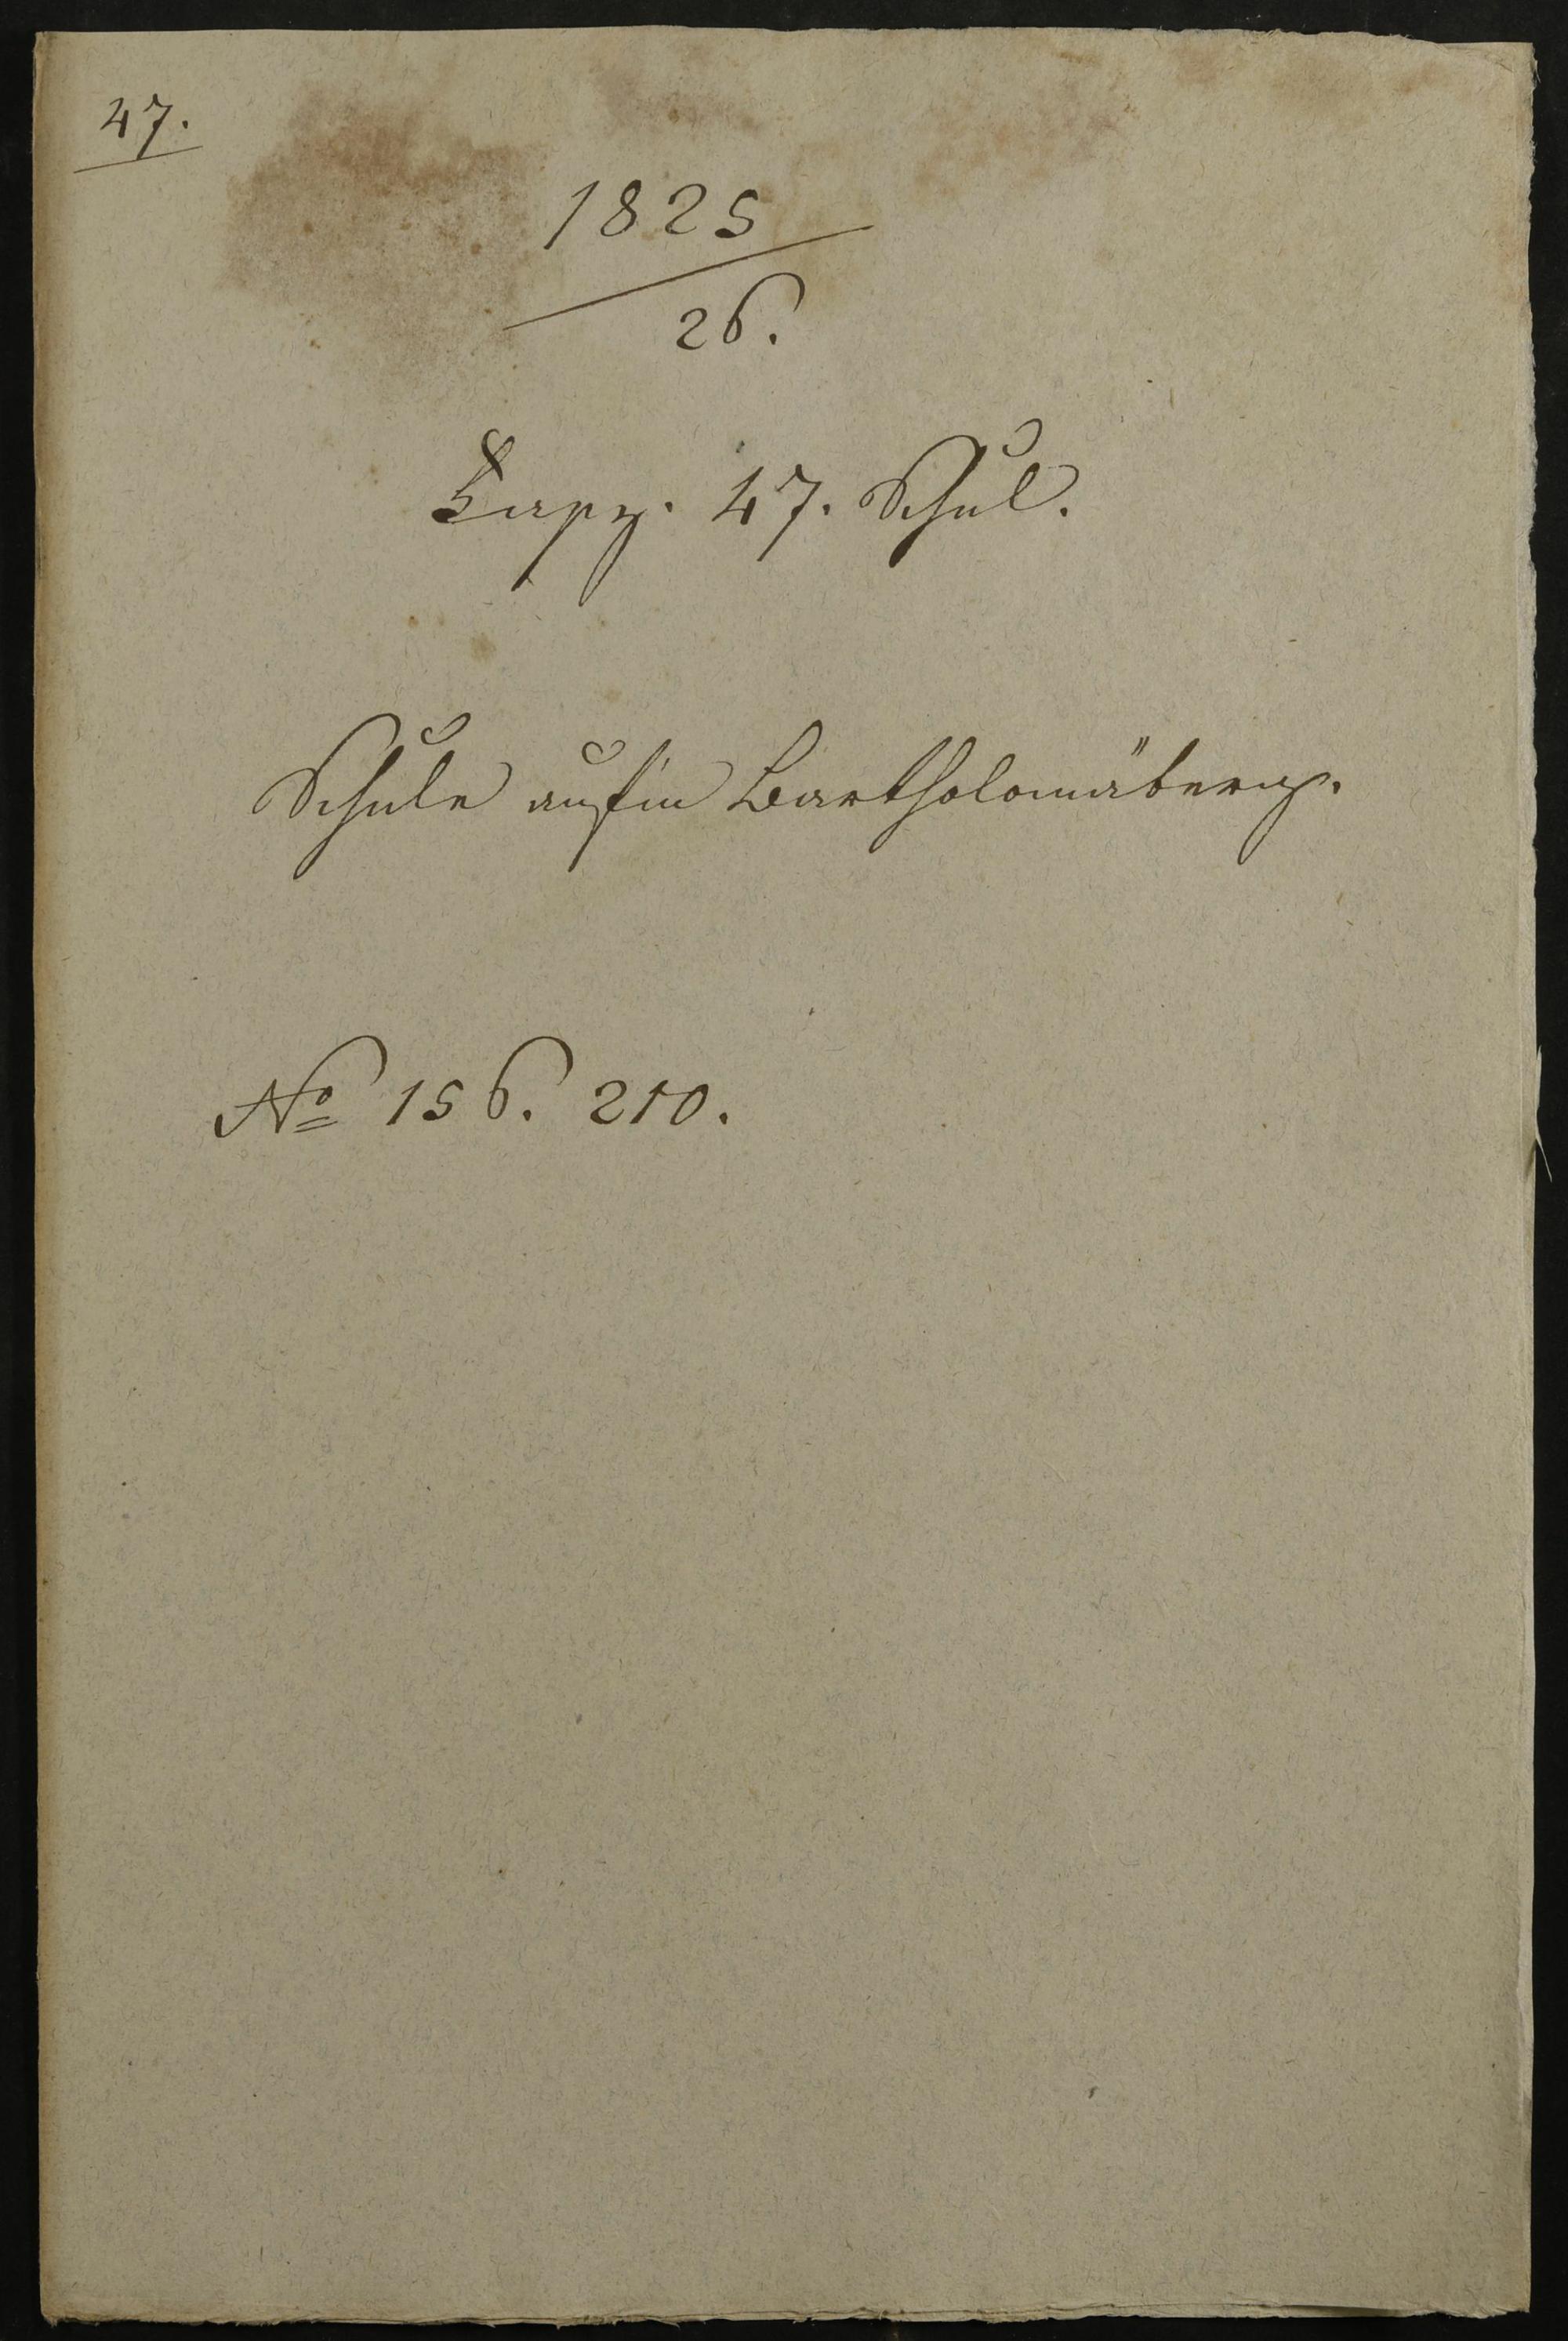 47.
1825
26.
Kapz. 47. Schul.
Schule auf'm Bartholomäberg.
No 156. 210.